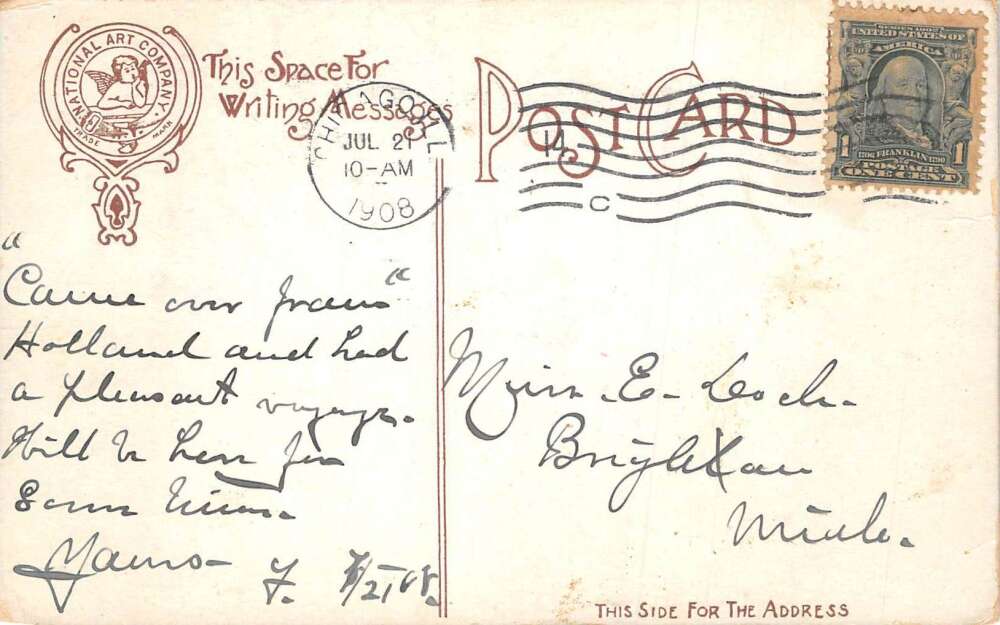 NATIONAL ART COMPANY
TRADE MARK
This Space For
Writing Messages
POST CARD
CHICAGO, ILL
JUL 21
10-AM
1908
14
C
SERIES 1902
UNITED STATES OF
AMERICA
1 1706 FRANKLIN 1790 1
POSTAGE
ONE CENT
"Came over from"
Holland and had
a pleasant voyage.
Will be here for
some time.
Yours-
F. 7/21 08.
Miss. E. Loch.
Brighton
Mich.
THIS SIDE FOR THE ADDRESS